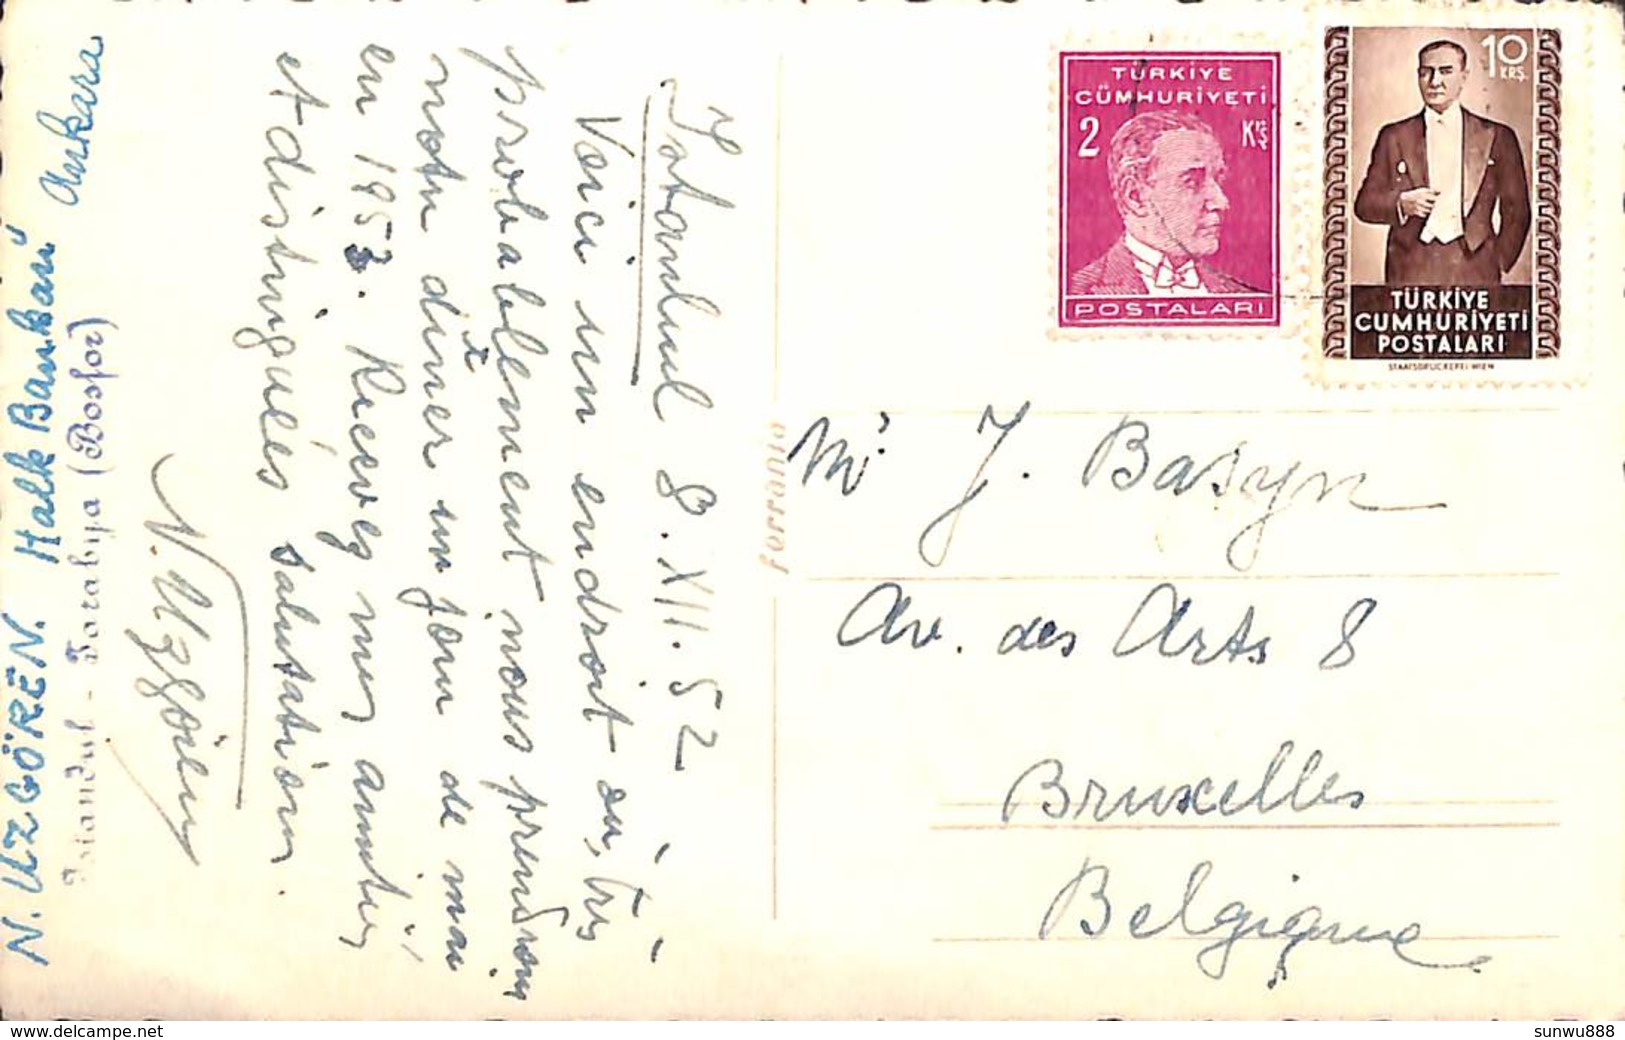 Istanbul 8.XII.52
Voici un endroit où, très
probablement nous prendrons
notre dîner un jour de mai
en 1953. Recevez mes amitiés
et distingués salutations.
N. Uzgören
N. UZGÖREN. Halk Bankası Ankara
Istanbul - Tarabya (Bosfor)
TÜRKİYE
CÜMHURİYETİ
2 Krş
POSTALARI
10
KRŞ.
TÜRKİYE
CUMHURİYETİ
POSTALARI
STAATSDRUCKEREI WIEN
Mr J. Basyn
Av. des Arts 8
Bruxelles
Belgique
Ferrania
sunwu888